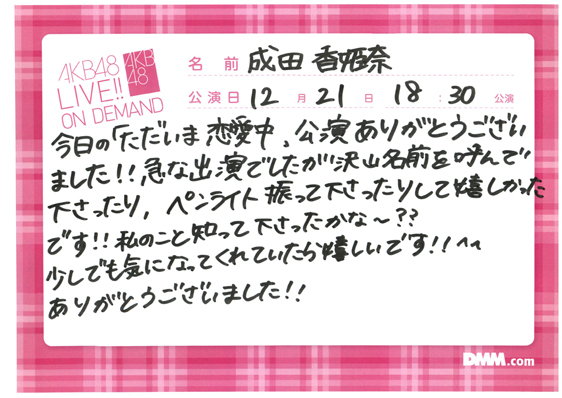 AKB48
LIVE!!
ON DEMAND
AKB
48
名 前 成田 香姫奈
公演日 12 月 21 日 18 : 30 公演
今日の「ただいま 恋愛中」公演ありがとうござい
ました!!急な出演でしたが沢山名前を呼んで
下さったり、ペンライト振って下さったりして嬉しかった
です!!私のこと知って下さったかな〜??
少しでも気になってくれていたら嬉しいです!!^^
ありがとうございました!!
DMM.com